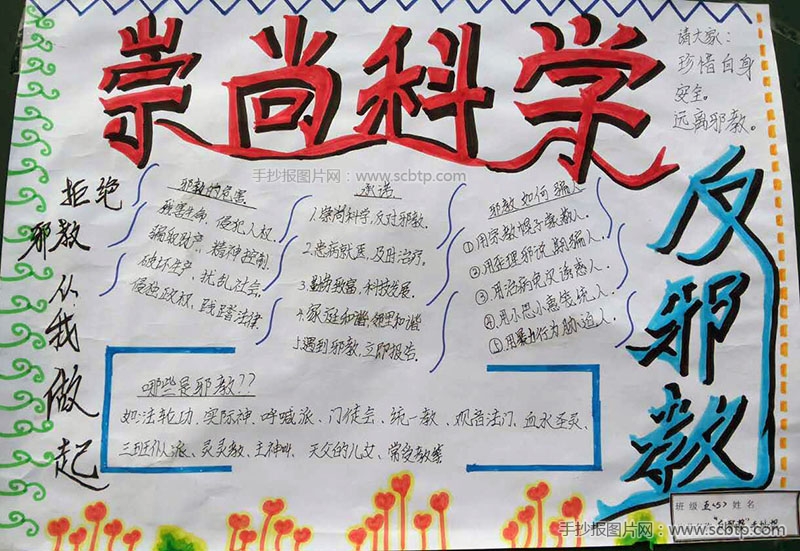 崇尚科学
反邪教
请大家:
珍惜自身
安全。
远离邪教。
拒绝
邪教
从
我
做
起
手抄报图片网:www.scbtp.com
邪教的危害
残害生命,侵犯人权.
骗取财产,精神控制.
破坏生产,扰乱社会.
侵蚀政权,践踏法律.
承诺
1.崇尚科学,反对邪教.
2.患病就医,及时治疗.
3.勤劳致富,科技发展.
4.家庭和谐,邻里和谐
5.遇到邪教,立即报告.
邪教如何骗人
①用宗教幌子蒙骗人.
②用歪理邪说欺骗人.
③用治病免灾诱惑人.
④用小恩小惠笼统人.
⑤用暴力行为胁迫人.
哪些是邪教??
如:法轮功、实际神、呼喊派、门徒会、统一教、观音法门、血水圣灵、
三班仆人派、灵灵教、主神教、天父的儿女、常受教等
班级 五(5) 姓名
手抄报图片网:www.scbtp.com